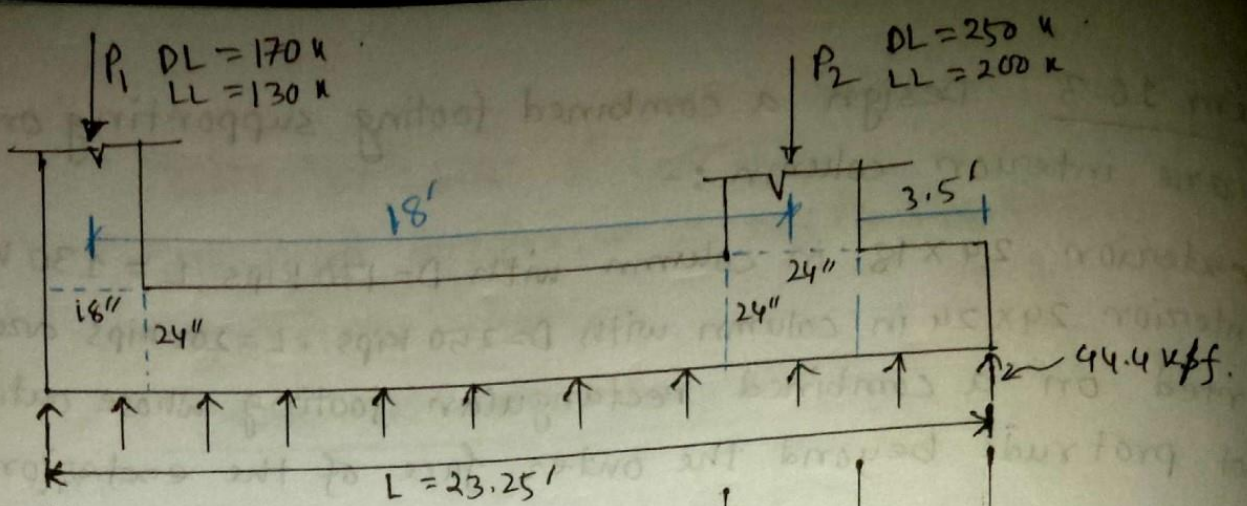 P1 DL = 170 k
LL = 130 k
P2 DL = 250 k
LL = 200 k
18'
3.5'
18"
24"
24"
24"
44.4 kpf.
L = 23.25'